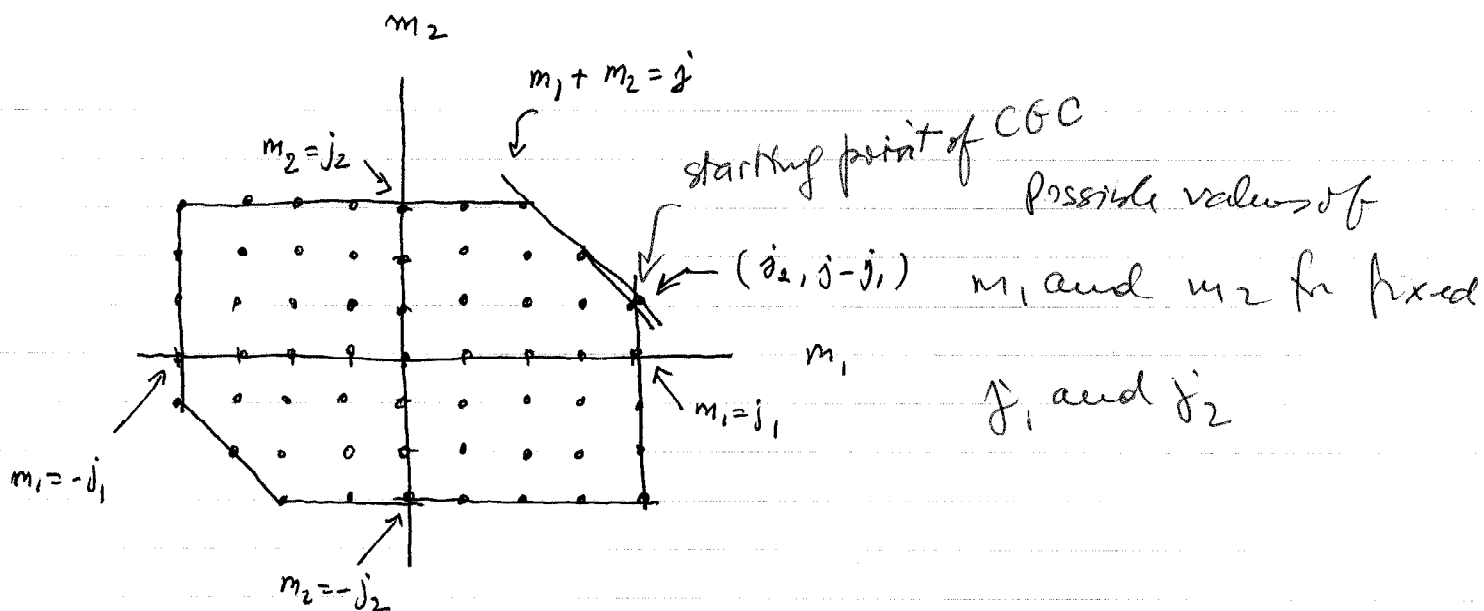 m₂
m₁ + m₂ = j
m₂ = j₂
starting point of CGC
possible values of
(j₁, j - j₁)
m₁ and m₂ for fixed
m₁
j₁ and j₂
m₁ = j₁
m₁ = -j₁
m₂ = -j₂